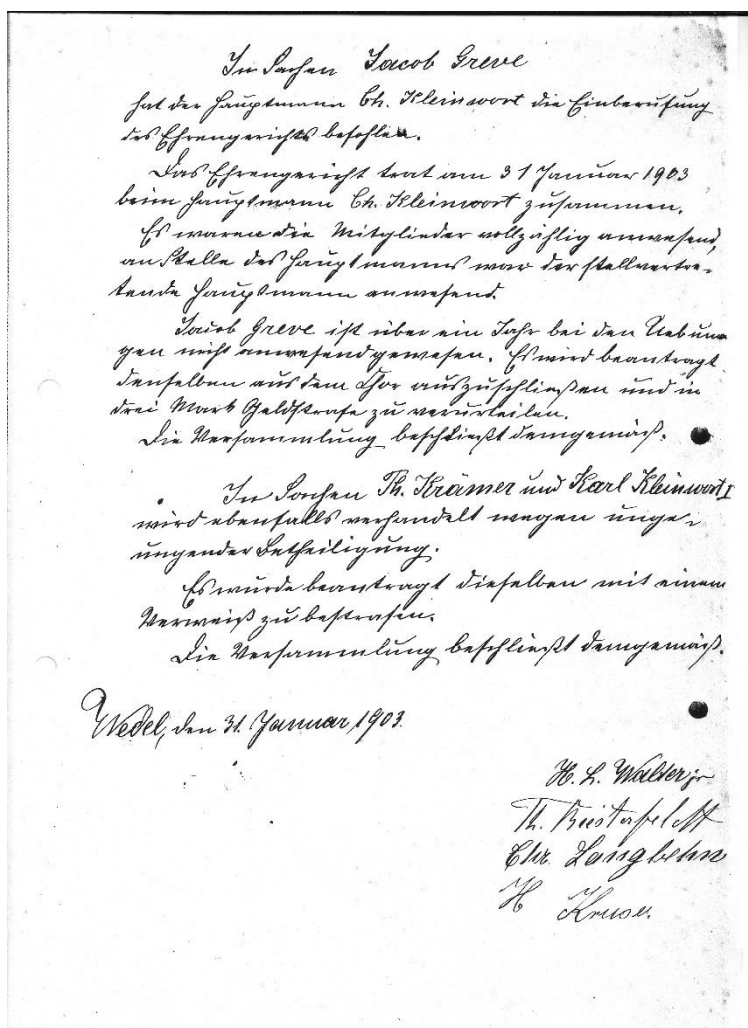 In Sachen Jacob Greve
hat der Hauptmann Ch. Kleinwort die Einberufung
des Ehrengerichts befohlen.
Das Ehrengericht trat am 31 Januar 1903
beim Hauptmann Ch. Kleinwort zusammen.
Es waren die Mitglieder vollzählig anwesend,
an Stelle des Hauptmanns war der stellvertre-
tende Hauptmann anwesend.
Jacob Greve ist über ein Jahr bei den Uebun-
gen nicht anwesend gewesen. Es wird beantragt
denselben aus dem Chor auszuschließen und in
drei Mark Geldstrafe zu verurteilen.
Die Versammlung beschließt demgemäß.
In Sachen Th. Krämer und Karl Kleinwort I
wird ebenfalls verhandelt wegen unge-
nügender Betheiligung.
Es wurde beantragt dieselben mit einem
Verweiß zu bestrafen.
Die Versammlung beschließt demgemäß.
Wedel, den 31. Januar 1903.
H. L. Walter jr
Th. Biesterfeldt
Chr. Langbehn
H Kruse.